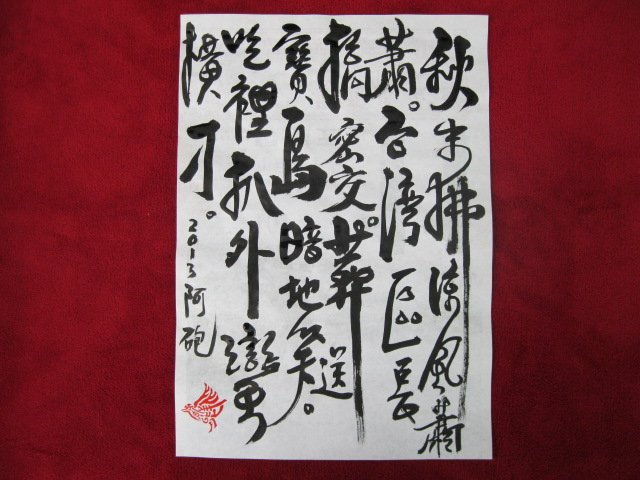 秋拂涼風蕭
蕭。台灣區長
搞密交。葬送
寶島暗地笑。
吃裡扒外
橫才。
2013阿砲